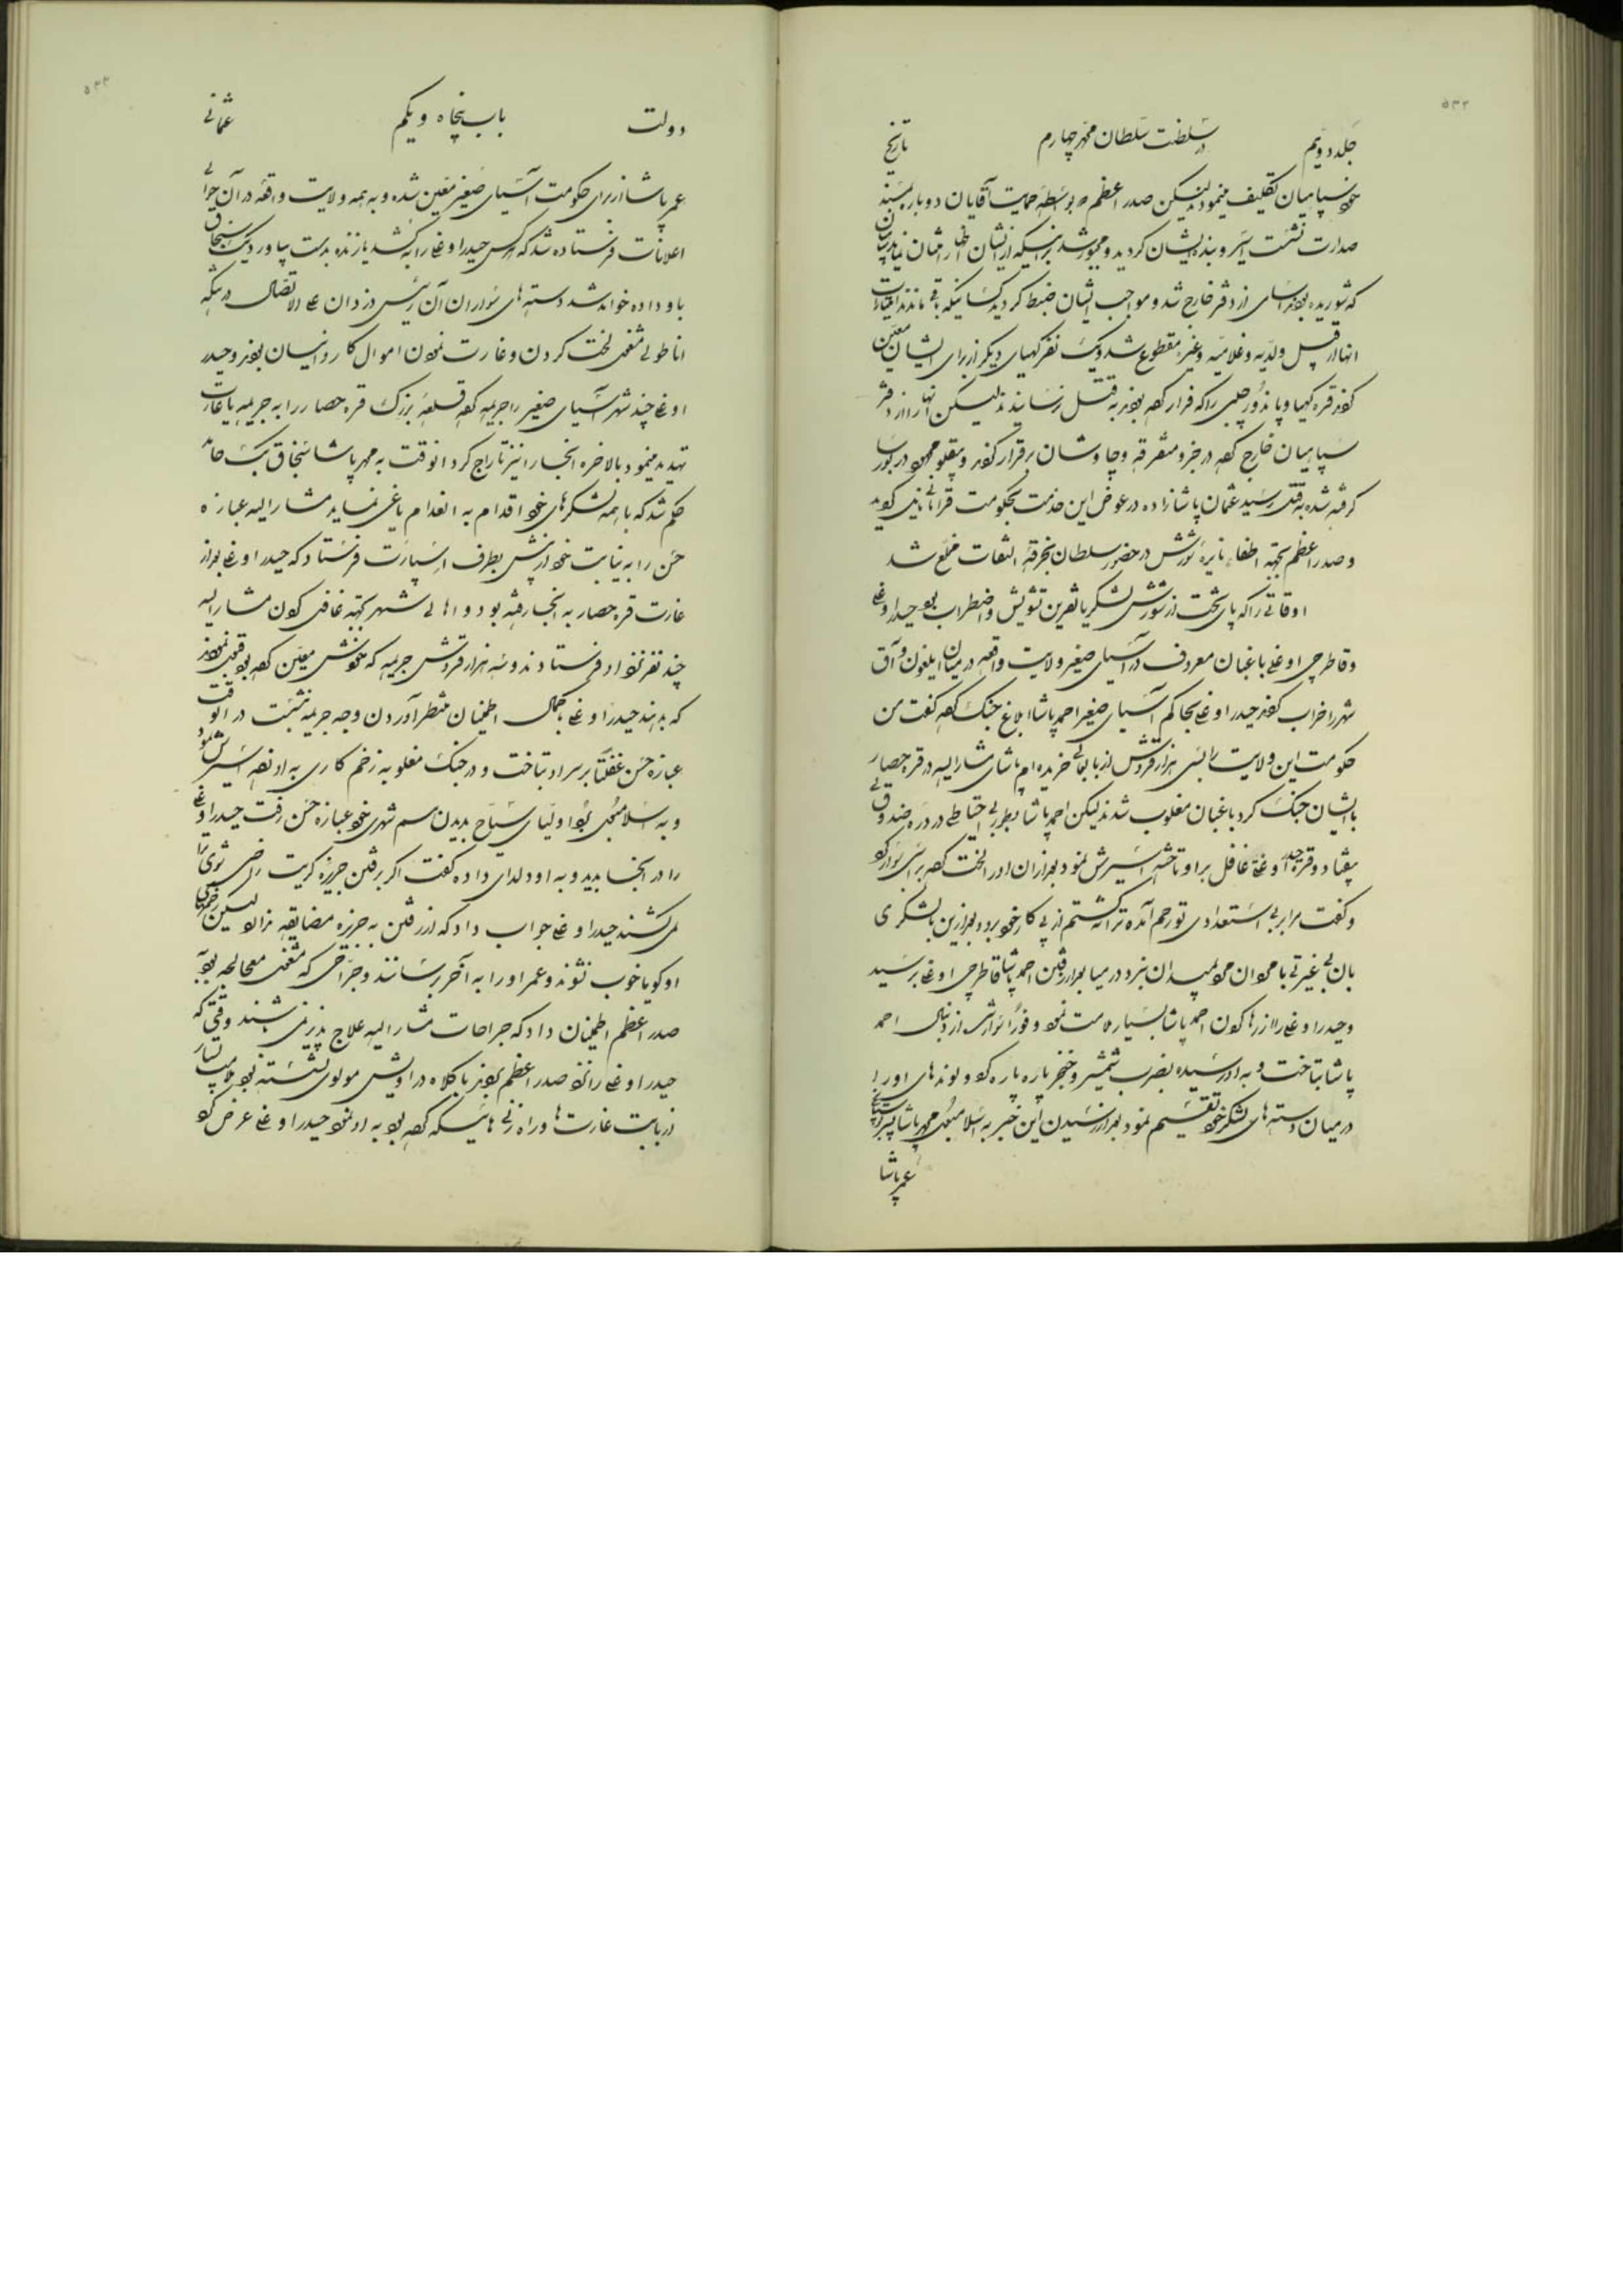 جلد دویم در سلطنت سلطان محمد چهارم تاریخ
سپاهیان تکلیف مینمودند لیکن صدر اعظم بواسطهٔ حمایت آقایان دوباره بمسند
صدارت نشست اسیر و بندهٔ ایشان گردید و مجبور شد
که شوریده بودند اسامی از دفتر خارج شد و مواجب ایشان ضبط گردید کسانیکه باقی ماندند
انها از قبیل ولدیه و غلامیه و غیره مقطوع شد و یک نفر کهیای دیگر از برای ایشان معین
کردند قره کهیا و پاندور چلبی را که فرار کرده بودند به قتل رسانیدند لیکن آنها را از دفتر
سپاهیان خارج کرده در جزو متفرقه و چاوشان برقرار کردند و
گرفته شده به قتل رسید عثمان پاشازاده در عوض این خدمت بحکومت نایل گردید
و صدر اعظم بجهة اطفاء نایرهٔ شورش در حضور سلطان بخرقهٔ التفات مخلع شد
اوقاتی را که پای تخت از شورش لشکریان قرین تشویش و اضطراب بود حیدر اوغلی
و قاطرجی اوغلی یاغیان معروف در آسیای صغیر ولایت واقعه در میان ایلغون و آق
شهر را خراب کردند حیدر اوغلی بحاکم آسیای صغیر احمد پاشا ابلاغ جنگ کرده گفت من
حکومت این ولایت را بسی هزار قروش از بابعالی خریده ام پاشای مشار الیه در قره حصار
با ایشان جنگ کرد یاغیان مغلوب شدند لیکن احمد پاشا بطور بی احتیاطی در دره صندوقلی
بیفتاد و قره حیدر اوغلی غافل بر او تاخته اسیرش نمود بعد از ان او را لخت کرده بر اسبی سوار کرد
و گفت مرا بر بی استعدادی تو رحم آمده ترا نکشتم از پی کار خود برو و بعد ازین با لشکری
بان بی غیرتی با جوان مرد بمیدان نبرد در میا بعد از رفتن احمد پاشا قاطرجی اوغلی برسید
و حیدر اوغلی را از رها کردن احمد پاشا بسیار ملامت نمود و فوراً سوارش از دنبال احمد
پاشا بتاخت و به او رسیده بضرب شمشیر و خنجر پاره پاره کرد و لوندهای او را
در میان دسته های لشکر خود تقسیم نمود بعد از رسیدن این خبر به اسلامبول محمد پاشا پسر
عمر پاشا
دولت باب پنجاه و یکم عثمانی
عمر پاشا از برای حکومت آسیای صغیر معین شده و به همه ولایت واقعه در آن حوالی
اعلانات فرستاده شد که هر کس حیدر اوغلی را بکشد یا زنده بدست بیاورد یک سنجاق
باو داده خواهد شد دسته های سواران آن رئیس دزدان علی الاتصال در سکه
اناطولی مشغول لخت کردن و غارت نمودن اموال کاروانیان بودند و حیدر
اوغلی چند شهر آسیای صغیر را جریمه کرده قلعهٔ بزرگ قره حصار را به جریمه یا غارت
تهدید مینمود بالاخره انجا را نیز تاراج کرد انوقت به محمد پاشا سنجاق بیک
حکم شد که با همه لشکرهای خود اقدام به انعدام یاغی نماید مشار الیه عبازه
حسن را به نیابت خود از پیش بطرف اسپارت فرستاد که حیدر اوغلی بعد از
غارت قره حصار به انجا رفته بود و اهالی شهر بجهة غافل کردن مشار الیه
چند نفر نزد او فرستادند و سه هزار قروش جریمه که خودش معین کرده بود قبول نمودند
که بدهند حیدر اوغلی با کمال اطمینان منتظر آوردن وجه جریمه نشست در انوقت
عبازه حسن غفلتاً بر سر او بتاخت و در جنگ مغلوبه زخم کاری به او زده اسیرش نمود
و به اسلامبول برد اولیای سیاح بدیدن هم شهری خود عبازه حسن رفت حیدر اوغلی
را در انجا بدید و به او دلداری داده گفت اگر برفتن جزیره کریت راضی شوی ترا
نمی کشند حیدر اوغلی جواب داد که از رفتن به جزیره مضایقه ندارد لیکن زخمهای
او گویا خوب نشوند و عمر او را به آخر رسانند و جراحی که مشغول معالجه بود به
صدر اعظم اطمینان داد که جراحات مشار الیه علاج پذیر نمی باشند وقتی که
حیدر اوغلی را نزد صدر اعظم بردند با کلاه دراویش مولوی نشسته بود
از بابت غارت ها و راه زنی هائیکه کرده بود به او نمود حیدر اوغلی عرض کرد